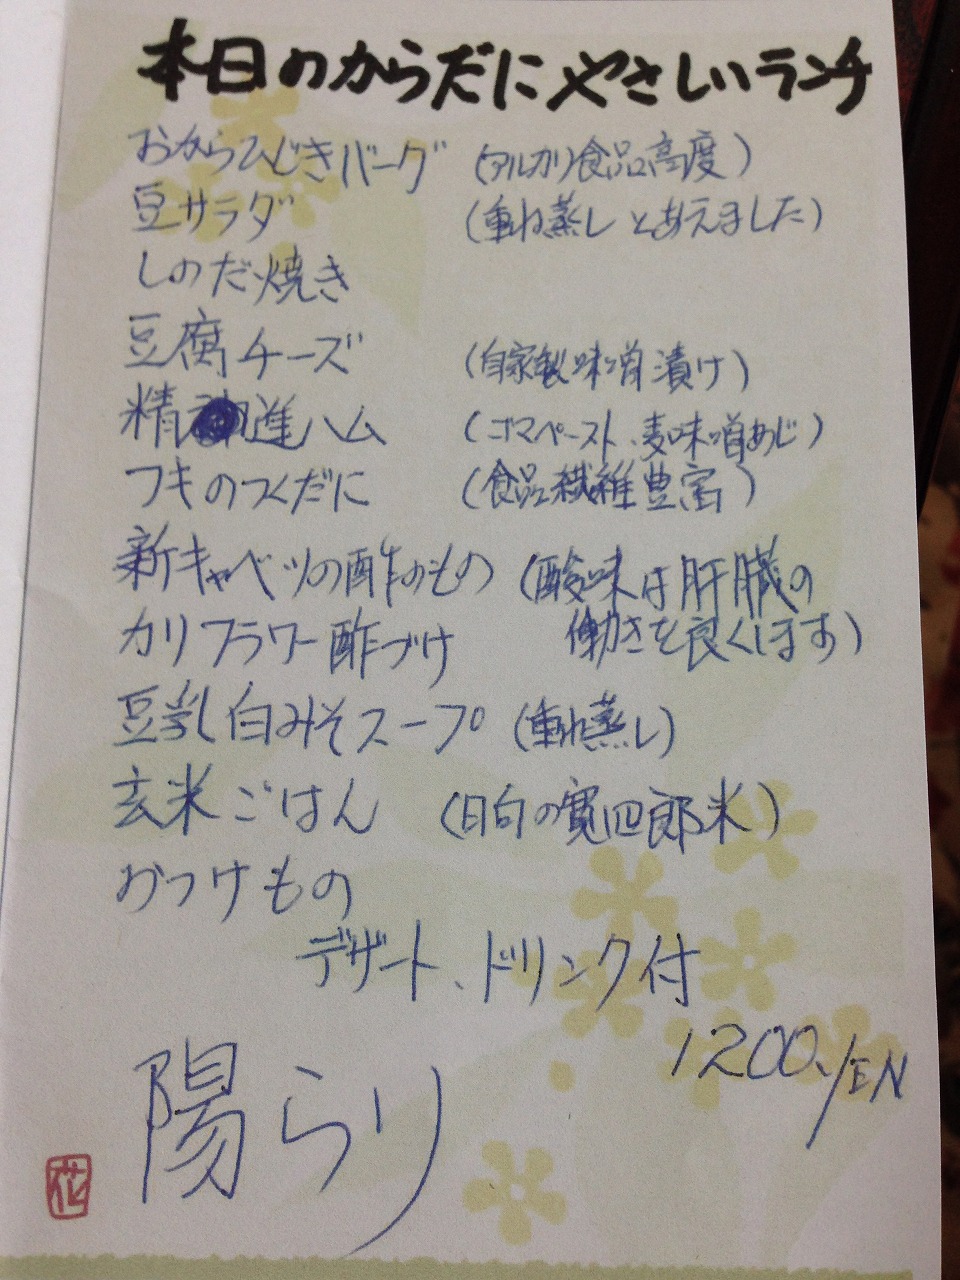 本日のからだにやさしいランチ
おからひじきバーグ (アルカリ食品高度)
豆サラダ (重ね蒸しとあえました)
しのだ焼き
豆腐チーズ (自家製味噌漬け)
精進ハム (ゴマペースト、麦味噌あじ)
フキのつくだに (食品繊維豊富)
新キャベツの酢のもの (酸味は肝臓の
カリフラワー酢づけ 働きを良くします)
豆乳白みそスープ (重ね蒸し)
玄米ごはん (日向の寛四郎米)
おつけもの
デザート、ドリンク付
1200./EN
陽らり
花